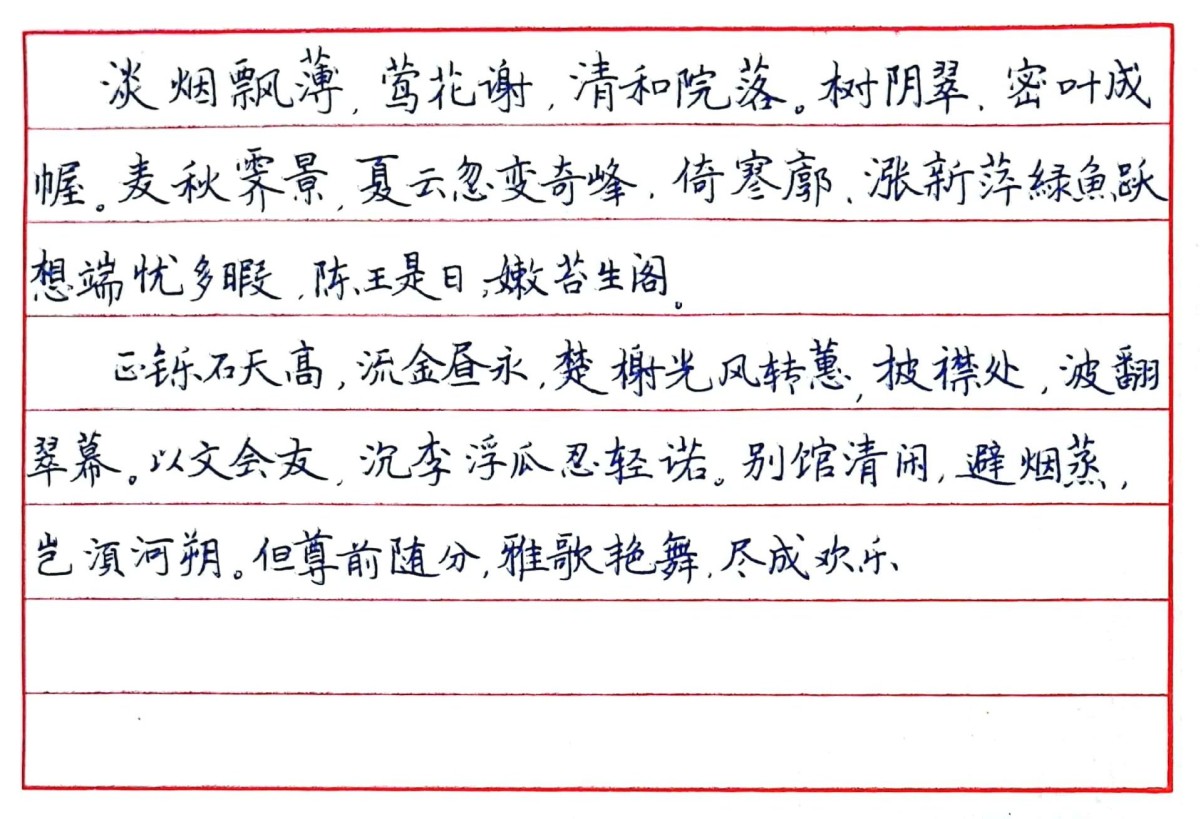 淡烟飘薄，莺花谢，清和院落。树阴翠、密叶成
幄。麦秋霁景，夏云忽变奇峰，倚寥廓、涨新萍緑魚跃
想端忧多暇，陈王是日，嫩苔生阁。
正铄石天高，流金昼永，楚榭光风转蕙，披襟处，波翻
翠幕。以文会友，沉李浮瓜忍轻诺。别馆清闲，避烟蒸，
岂湏河朔。但尊前随分，雅歌艳舞，尽成欢乐